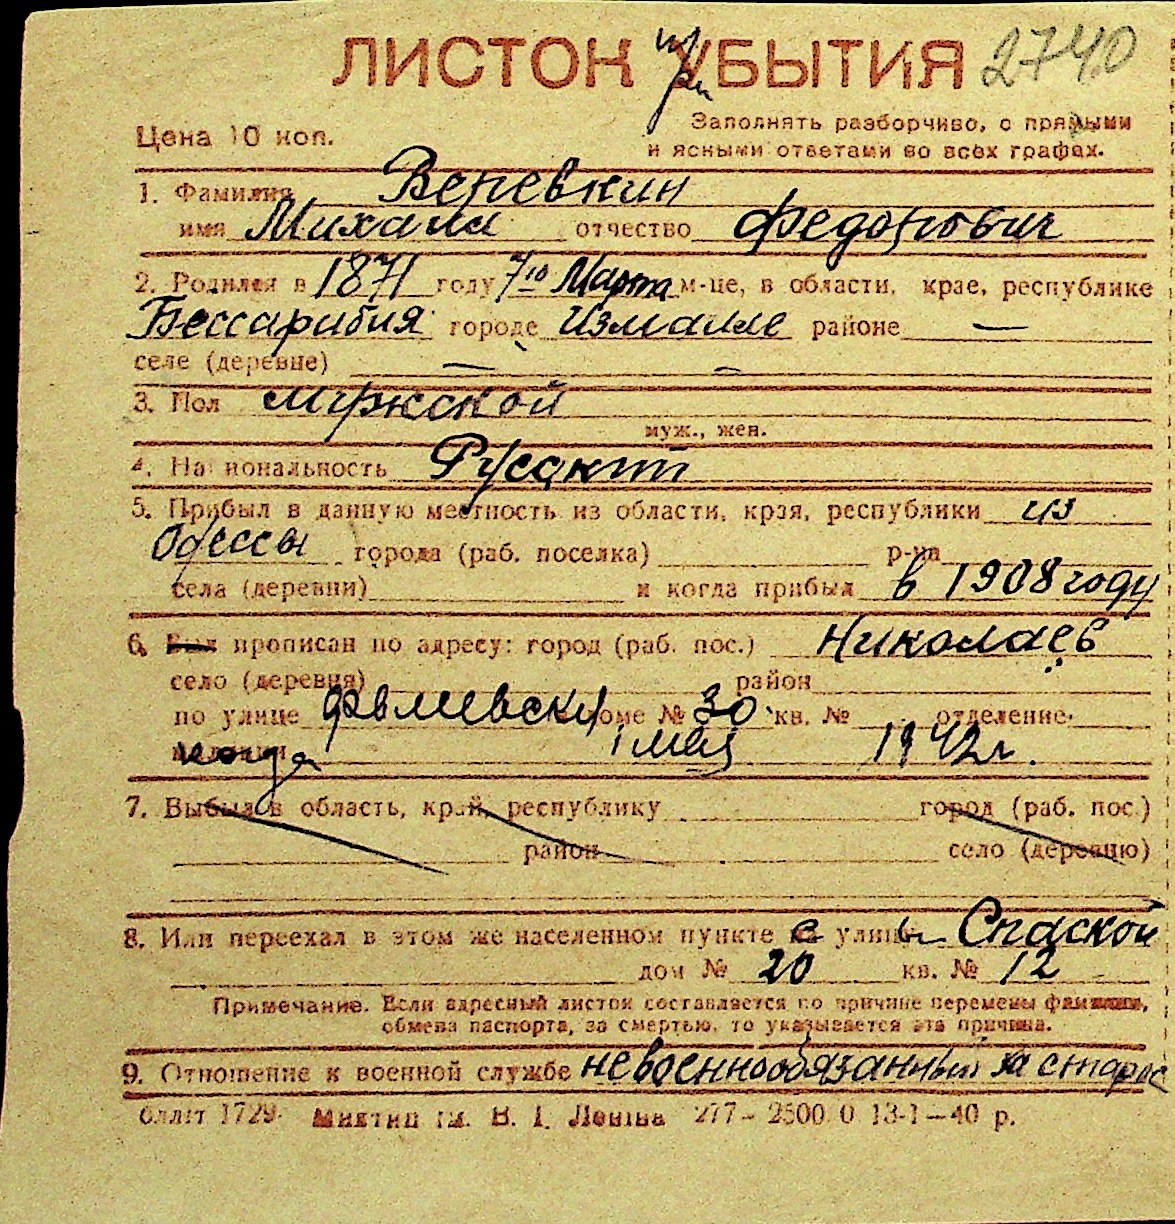 ЛИСТОК УБЫТИЯ 2740
при
Цена 10 коп.
Заполнять разборчиво, с прямыми
и ясными ответами во всех графах.
1. Фамилия Веревкин
имя Михаил отчество Федорович
2. Родился в 1871 году 7го Марта м-це, в области, крае, республике
Бессарабия городе Измаиле районе —
селе (деревне) — —
3. Пол мужской
муж., жен.
4. Национальность Русский
5. Прибыл в данную местность из области, края, республики из
Одессы города (раб. поселка) р-на
села (деревни) и когда прибыл в 1908 году
6. Был прописан по адресу: город (раб. пос.) Николаев
село (деревня) район
по улице доме № 30 кв. № отделение
когда 1 мая 1942 г.
7. Выбыл в область, край, республику город (раб. пос.)
район село (деревню)
8. Или переехал в этом же населенном пункте с улицы Спаской
дом № 20 кв. № 12
Примечание. Если адресный листок составляется по причине перемены фамилии,
обмена паспорта, за смертью, то указывается эта причина.
9. Отношение к военной службе невоеннообязанный за старос
1729. В. І. Леніна 277—2500 0 13-1—40 р.